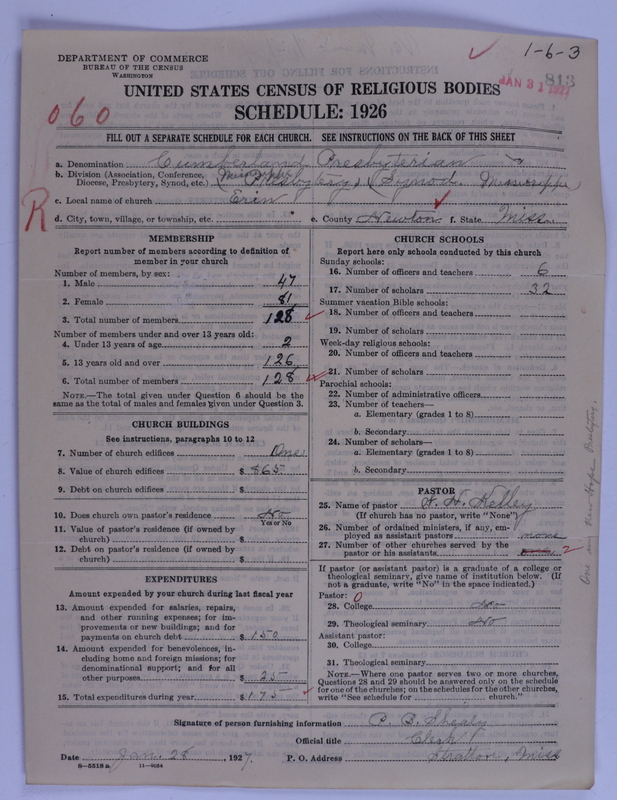 1-6-3
DEPARTMENT OF COMMERCE
BUREAU OF THE CENSUS
WASHINGTON
JAN 31 1927
813
UNITED STATES CENSUS OF RELIGIOUS BODIES
SCHEDULE: 1926
060
FILL OUT A SEPARATE SCHEDULE FOR EACH CHURCH. SEE INSTRUCTIONS ON THE BACK OF THIS SHEET
a. Denomination Cumberland Presbyterian
b. Division (Association, Conference, Diocese, Presbytery, Synod, etc.) (Presbytery) (Synod Mississippi
c. Local name of church Erin
R
d. City, town, village, or township, etc. e. County Newton f. State Miss.
MEMBERSHIP
Report number of members according to definition of member in your church
Number of members, by sex:
1. Male 47
2. Female 81
3. Total number of members 128
Number of members under and over 13 years old:
4. Under 13 years of age 2
5. 13 years old and over 126
6. Total number of members 128
NOTE.—The total given under Question 6 should be the same as the total of males and females given under Question 3.
CHURCH BUILDINGS
See instructions, paragraphs 10 to 12
7. Number of church edifices One
8. Value of church edifices $ 865
9. Debt on church edifices $
10. Does church own pastor's residence No
Yes or No
11. Value of pastor's residence (if owned by church) $
12. Debt on pastor's residence (if owned by church) $
EXPENDITURES
Amount expended by your church during last fiscal year
13. Amount expended for salaries, repairs, and other running expenses; for improvements or new buildings; and for payments on church debt $ 150
14. Amount expended for benevolences, including home and foreign missions; for denominational support; and for all other purposes $ 25
15. Total expenditures during year $ 175
CHURCH SCHOOLS
Report here only schools conducted by this church
Sunday schools:
16. Number of officers and teachers 6
17. Number of scholars 32
Summer vacation Bible schools:
18. Number of officers and teachers
19. Number of scholars
Week-day religious schools:
20. Number of officers and teachers
21. Number of scholars
Parochial schools:
22. Number of administrative officers
23. Number of teachers—
a. Elementary (grades 1 to 8)
b. Secondary
24. Number of scholars—
a. Elementary (grades 1 to 8)
b. Secondary
PASTOR
25. Name of pastor H. Kelley
(If church has no pastor, write "None")
26. Number of ordained ministers, if any, employed as assistant pastors none
27. Number of other churches served by the pastor or his assistants 2
If pastor (or assistant pastor) is a graduate of a college or theological seminary, give name of institution below. (If not a graduate, write "No" in the space indicated.)
Pastor: 0
28. College No
29. Theological seminary No
Assistant pastor:
30. College
31. Theological seminary
NOTE.—Where one pastor serves two or more churches, Questions 28 and 29 should be answered only on the schedule for one of the churches; on the schedules for the other churches, write "See schedule for church."
New Hope Presbytery.
Signature of person furnishing information P. B. Shealy
Official title Clerk
Date Jan. 28, 1927. P. O. Address Stratton, Miss
8—5518 a 11—9054